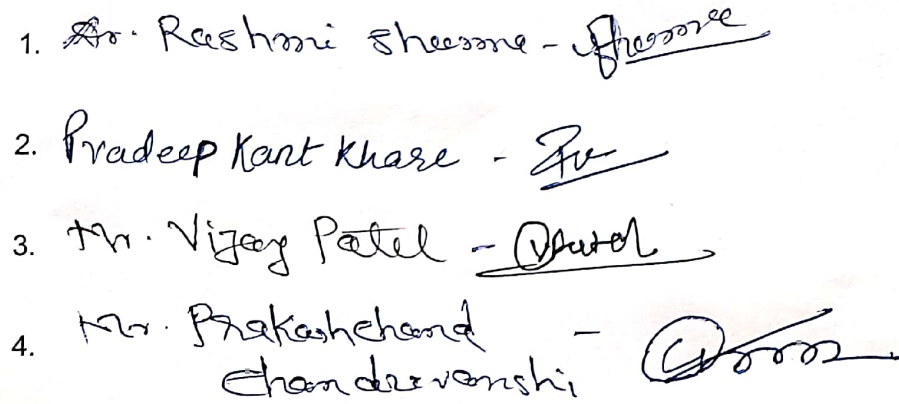 1. Dr. Rashmi Sharma -
2. Pradeep Kant Khare -
3. Mr. Vijay Patel - VPatel
4. Mr. Prakashchand -
Chandravanshi